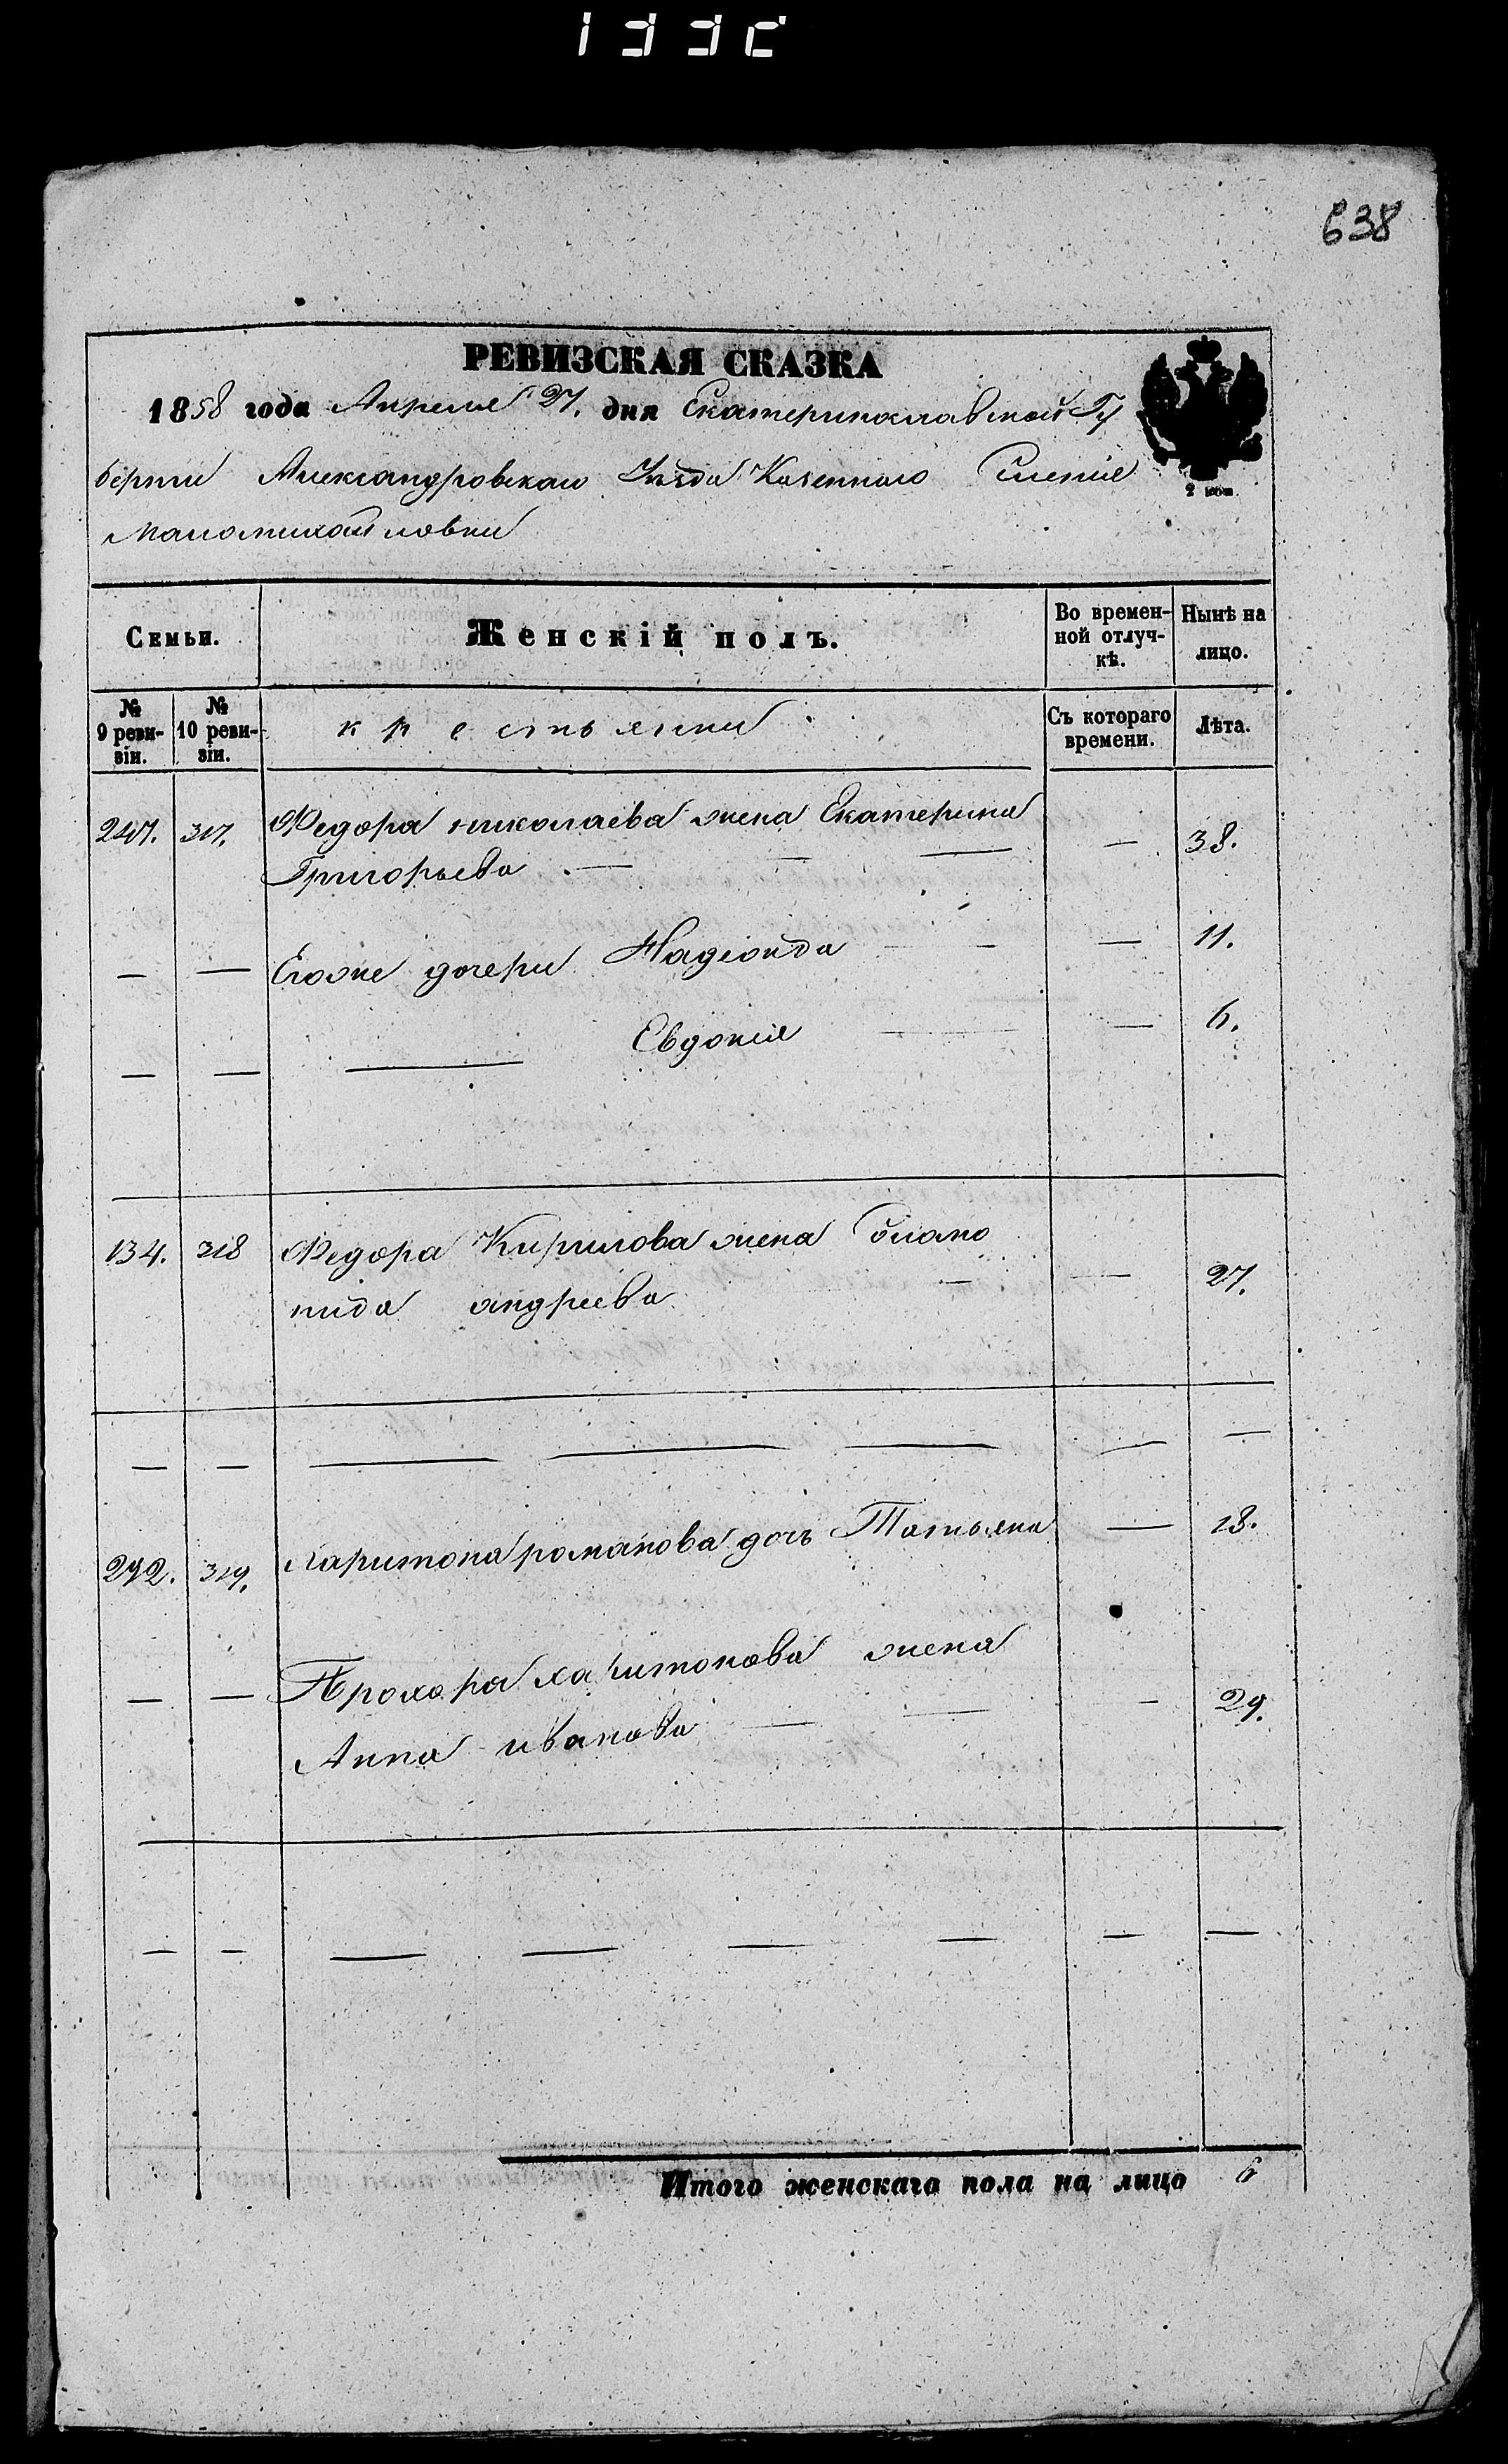 638
РЕВИЗСКАЯ СКАЗКА
1858 года Апреля 27. дня Екатеринославской Гу
берніи Александровскаго Уезда Казеннаго Селенія
Маломихайловки
2 коп.
Семьи. Женскій полъ. Во времен-ной отлуч-кѣ. Нынѣ на лицо.
№ 9 реви-зіи. № 10 реви-зіи. крестьянки Съ котораго времени. Лѣта.
247. 317. Федора николаева жена Екатерина
Григорьева — — — — 38.
— — Егоже дочери Надежда — — — 11.
— — — Евдокия — — 6.
134. 318 Федора Кирилова жена Солано
нида андреева — — 27.
— — — — — — —
292. 319. харитона романова дочь Татьяна — 18.
— — Прохора харитонова жена
Анна иванова — — — 29.
— — — — — — — —
Итого женскаго пола на лицо 6